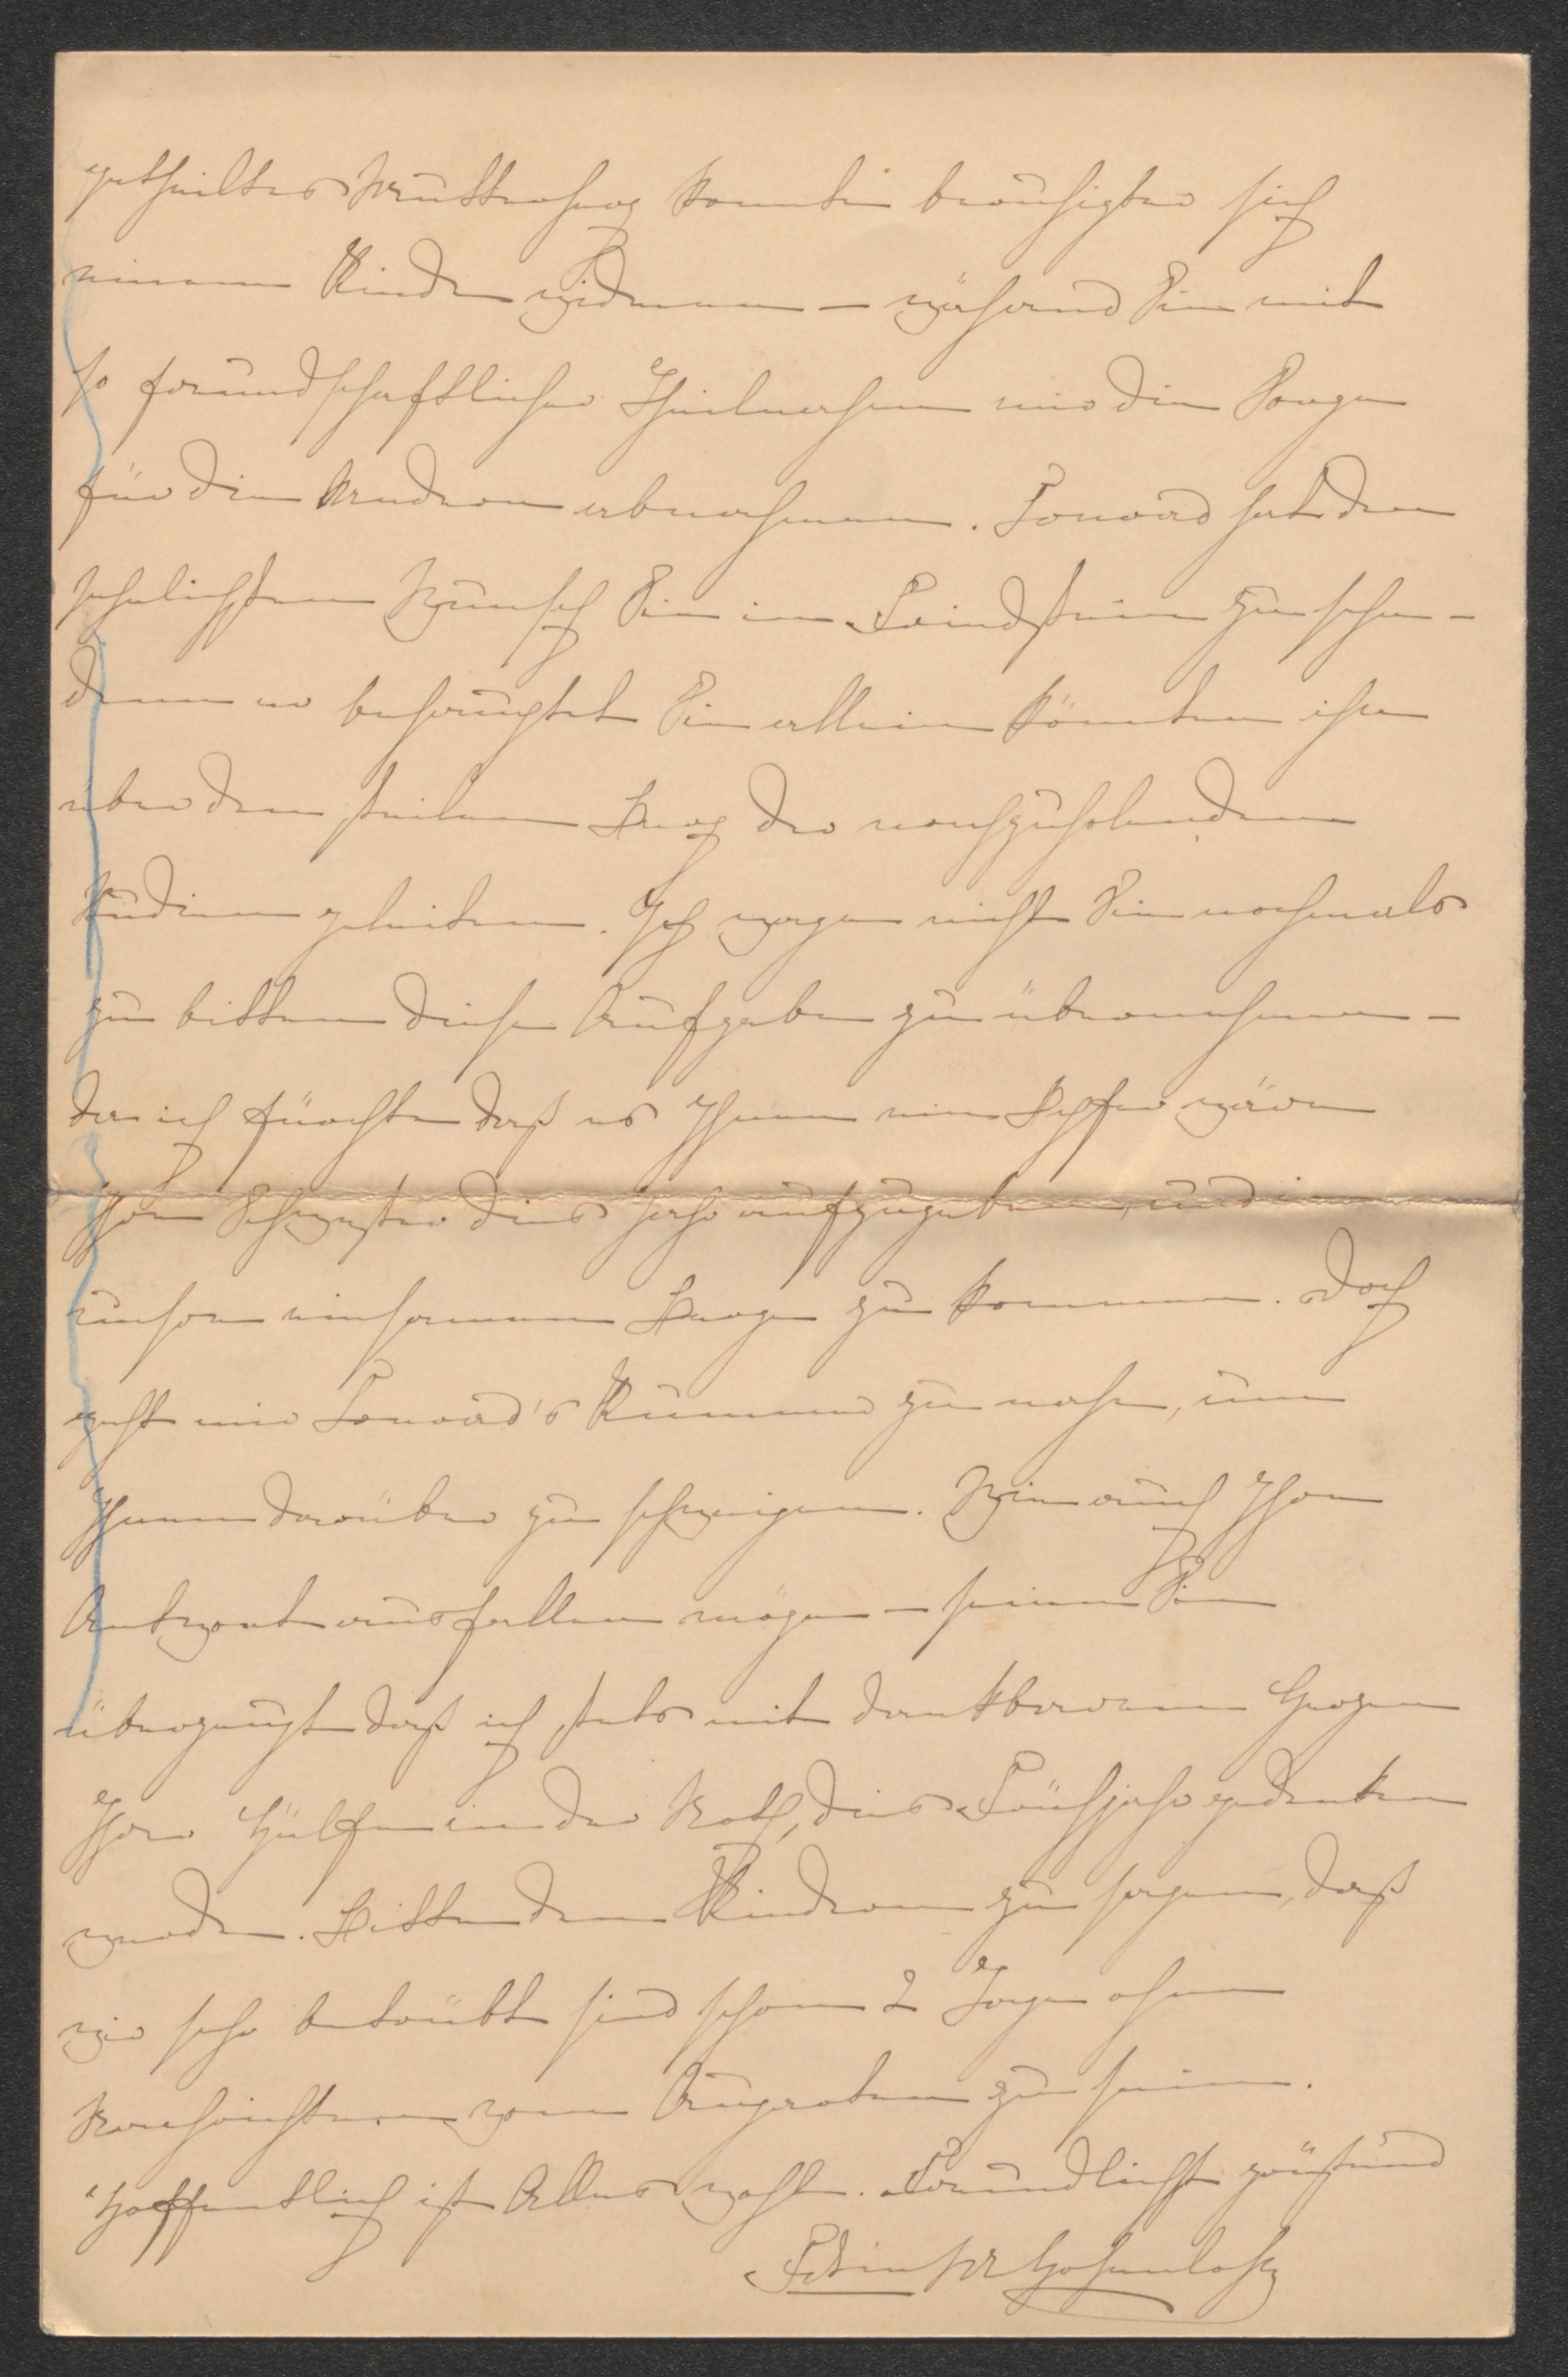 getheiltes Mutterherz konnte beruhigter sich
einem Kinde widmen – während Sie mit
so freundschaftlicher Theilnahme mir die Sorge
für die Anderen abnahmen. Conrad hat den
sehnlichsten Wunsch Sie in Friedstein zu sehen –
denn er behauptet Sie allein könnten ihn
über den steilen Berg der nachzuholenden
Studien geleiten. Ich wage nicht Sie nochmals
zu bitten diese Aufgabe zu übernehmen –
da ich fürchte daß es Ihnen ein Opfer wäre
Ihre Schwester dies Jahr aufzugeben, und in
unsere einsamen Berge zu kommen. Doch
geht mir Conrad's Kummer zu nahe, um
Ihnen darüber zu schweigen. Wie auch Ihre
Antwort ausfallen möge – seien Sie
überzeugt daß ich stets mit dankbarem Herzen
Ihrer Hülfe in der Noth, dies Frühjahr gedenken
werde. Bitte den Kindern zu sagen, daß
wir sehr betrübt sind schon 2 Tage ohne
Nachrichten vom Augarten zu sein.
Hoffentlich ist Alles wohl. Freundlichst grüßend
Fstin M Hohenlohe